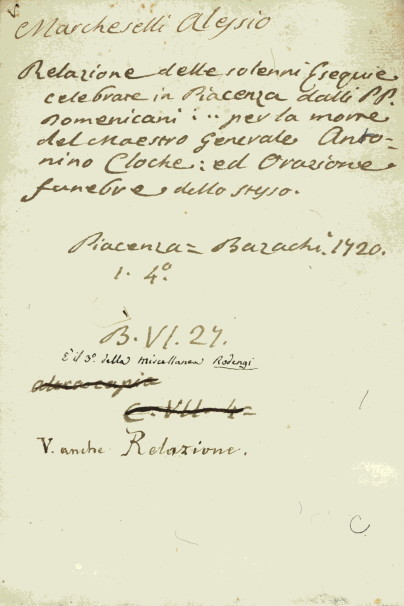 Marcheselli Alessio
Relazione delle solenni Esequie
celebrate in Piacenza dalli PP.
Domenicani ... per la morte
del Maestro Generale Anto=
nino Cloche: ed Orazione
funebre dello stesso.
Piacenza = Bazachi. 1720.
1. 4º
B. VI. 27.
È il 3º della miscellanea Rodengi
altra copia
C. VII. 4=
V. anche Relazione.
C